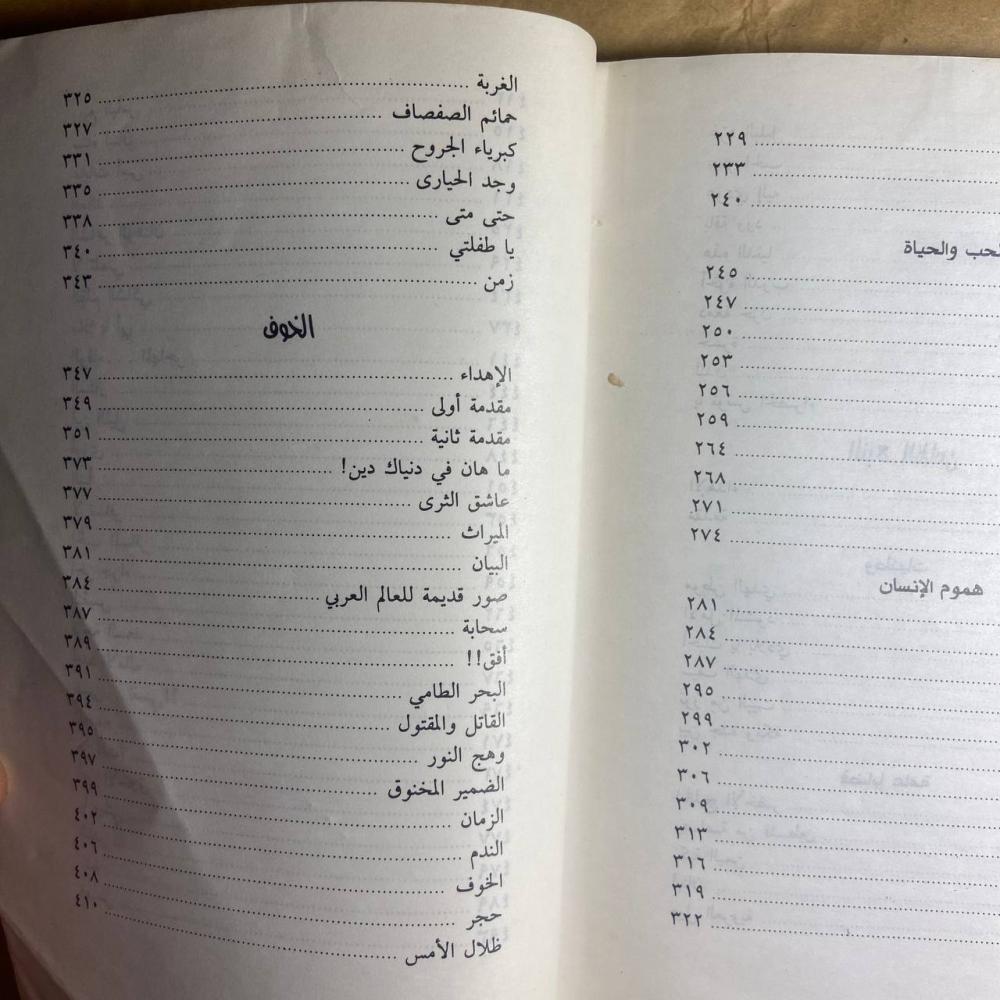 ٢٢٩
٢٣٣
٢٤٠
والحياة
٢٤٥
٢٤٧
٢٥٠
٢٥٣
٢٥٦
٢٥٩
٢٦٤
٢٦٨
٢٧١
٢٧٤
هموم الإنسان
٢٨١
٢٨٤
٢٨٧
٢٩٥
٢٩٩
٣٠٢
٣٠٦
٣٠٩
٣١٣
٣١٦
٣١٩
٣٢٢
الغربة ٣٢٥
حمائم الصفصاف ٣٢٧
كبرياء الجروح ٣٣١
وجد الحيارى ٣٣٥
حتى متى ٣٣٨
يا طفلتي ٣٤٠
زمن ٣٤٣
الخوف
الإهداء ٣٤٧
مقدمة أولى ٣٤٩
مقدمة ثانية ٣٥١
ما هان في دنياك دين! ٣٧٣
عاشق الثرى ٣٧٧
الميراث ٣٧٩
البيان ٣٨١
صور قديمة للعالم العربي ٣٨٤
سحابة ٣٨٧
أفق!! ٣٨٩
البحر الطامي ٣٩١
القاتل والمقتول ٣٩٤
وهج النور ٣٩٥
الضمير المخنوق ٣٩٧
الزمان ٣٩٩
الندم ٤٠٢
الخوف ٤٠٦
حجر ٤٠٨
ظلال الأمس ٤١٠